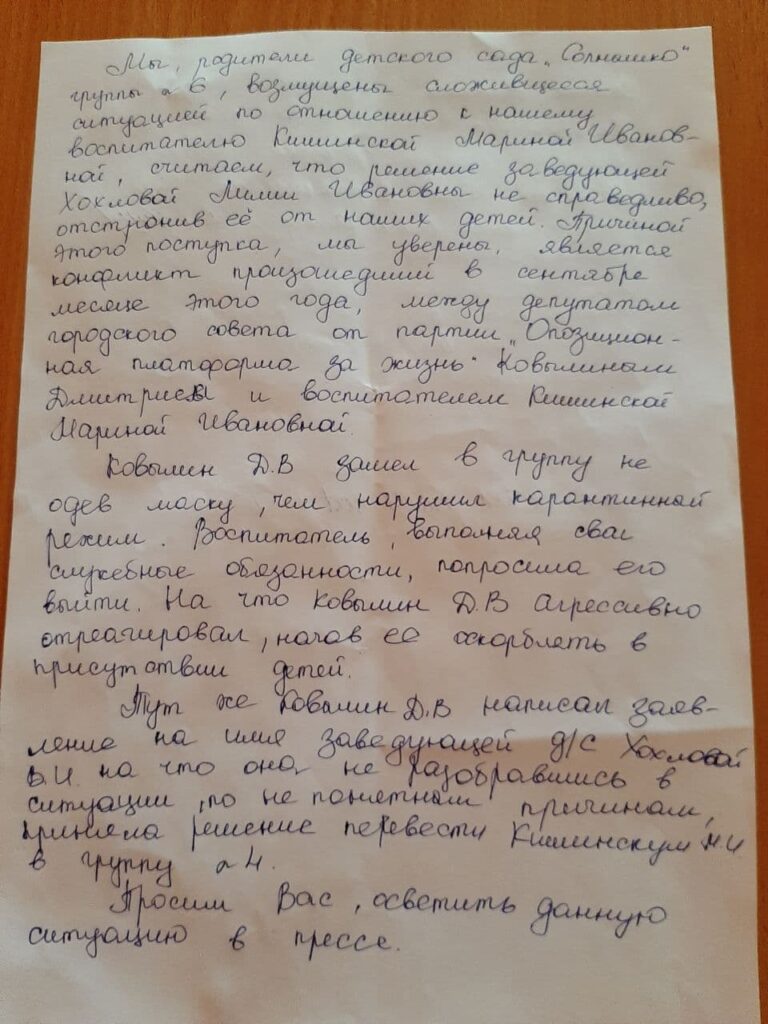 Мы, родители детского сада „Солнышко"
группы № 6, возмущены сложившееся
ситуацией по отношению к нашему
воспитателю Кишинской Мариной Иванов-
ной, считаем, что решение заведующей
Хохловой Лилии Ивановны не справедливо,
отстронив её от наших детей. Причиной
этого поступка, мы уверены, является
конфликт произошедший в сентябре
месяце этого года, между депутатом
городского совета от партии „Опозицион-
ная платформа за жизнь" Ковылиным
и воспитателем Кишинской
Мариной Ивановной.
Ковылин Д.В зашел в группу не
одев маску, чем нарушил карантинный
режим. Воспитатель, выполняя свои
служебные обязанности, попросила его
выйти. На что Ковылин Д.В агрессивно
отреагировал, начав ее оскорблять в
присутствии детей.
Тут же Ковылин Д.В написал заяв-
ление на имя заведующей д/с Хохловой
на что она, не разобравшись в
ситуации, по не понятным причинам,
приняла решение перевести Кишинскую М.И
в группу № 4.
Просим Вас, осветить данную
ситуацию в прессе.